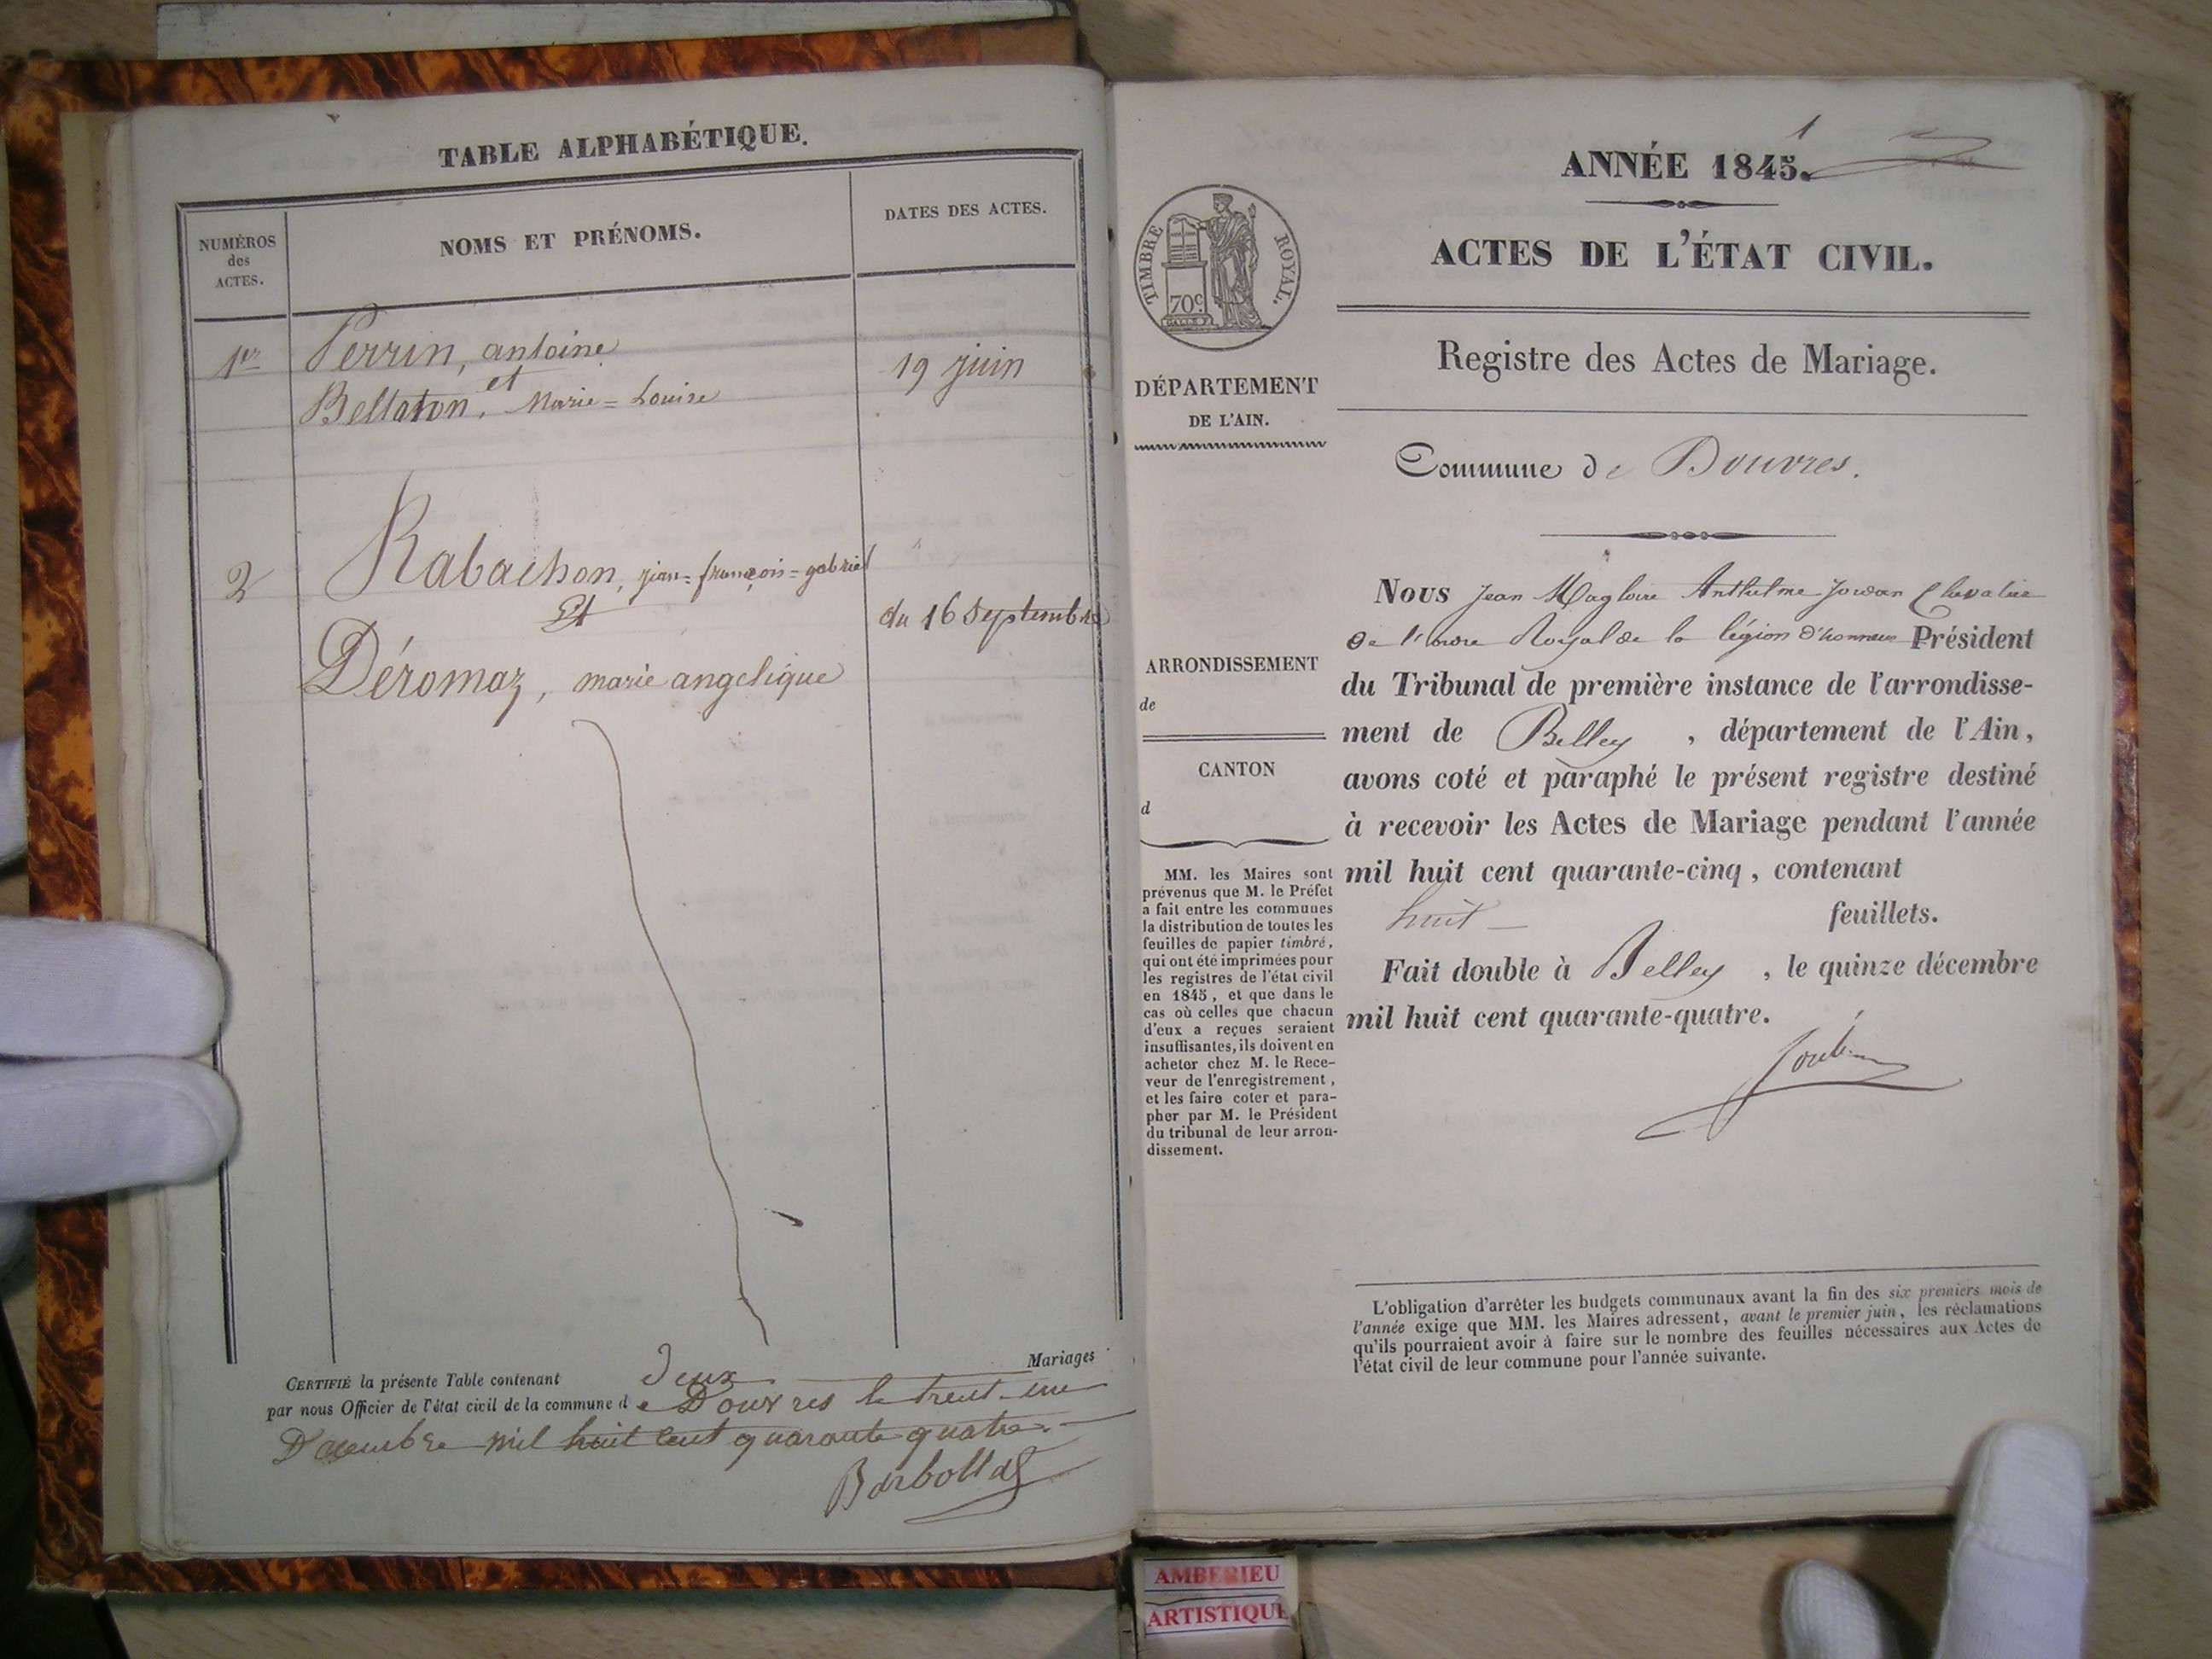 TABLE ALPHABÉTIQUE.
NUMÉROS
des
ACTES.
NOMS ET PRÉNOMS.
DATES DES ACTES.
1er
Perrin, antoine
et
Bellaton, Marie=Louise
19 juin
2
Rabachon, jean=françois=gabriel
Et
Déromaz, marie angelique
du 16 Septembre
CERTIFIÉ la présente Table contenant Deux Mariages
par nous Officier de l'état civil de la commune de Douvres le trent-un
Décembre mil huit cent quarante quatre.
Barbollat
1
ANNÉE 1845.
ACTES DE L'ÉTAT CIVIL.
TIMBRE ROYAL.
70c
Registre des Actes de Mariage.
DÉPARTEMENT
DE L'AIN.
Commune de Douvres.
Nous Jean Magloire Anthelme Chevalier
de l'ordre Royal de la légion d'honneur Président
du Tribunal de première instance de l'arrondisse-
ment de Belley, département de l'Ain,
avons coté et paraphé le présent registre destiné
à recevoir les Actes de Mariage pendant l'année
mil huit cent quarante-cinq, contenant
huit feuillets.
Fait double à Belley, le quinze décembre
mil huit cent quarante-quatre.
ARRONDISSEMENT
de
CANTON
d
MM. les Maires sont
prévenus que M. le Préfet
a fait entre les communes
la distribution de toutes les
feuilles de papier timbré,
qui ont été imprimées pour
les registres de l'état civil
en 1845, et que dans le
cas où celles que chacun
d'eux a reçues seraient
insuffisantes, ils doivent en
acheter chez M. le Rece-
veur de l'enregistrement,
et les faire coter et para-
pher par M. le Président
du tribunal de leur arron-
dissement.
L'obligation d'arrêter les budgets communaux avant la fin des six premiers mois de
l'année exige que MM. les Maires adressent, avant le premier juin, les réclamations
qu'ils pourraient avoir à faire sur le nombre des feuilles nécessaires aux Actes de
l'état civil de leur commune pour l'année suivante.
AMBERIEU
ARTISTIQUE